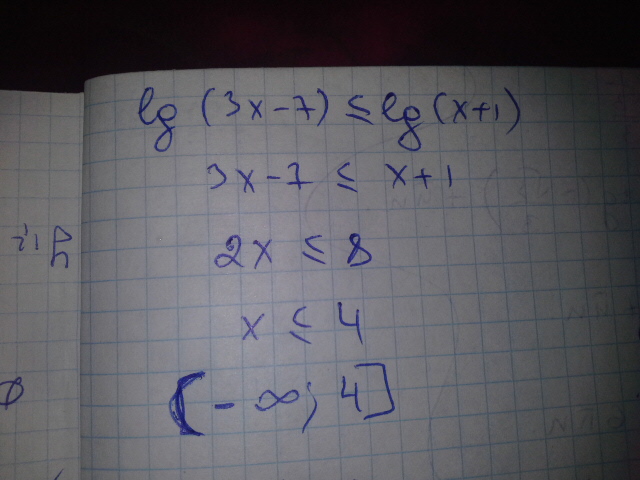 lg (3x-7) ≤ lg (x+1)
3x-7 ≤ x+1
2x ≤ 8
x ≤ 4
(-∞; 4]